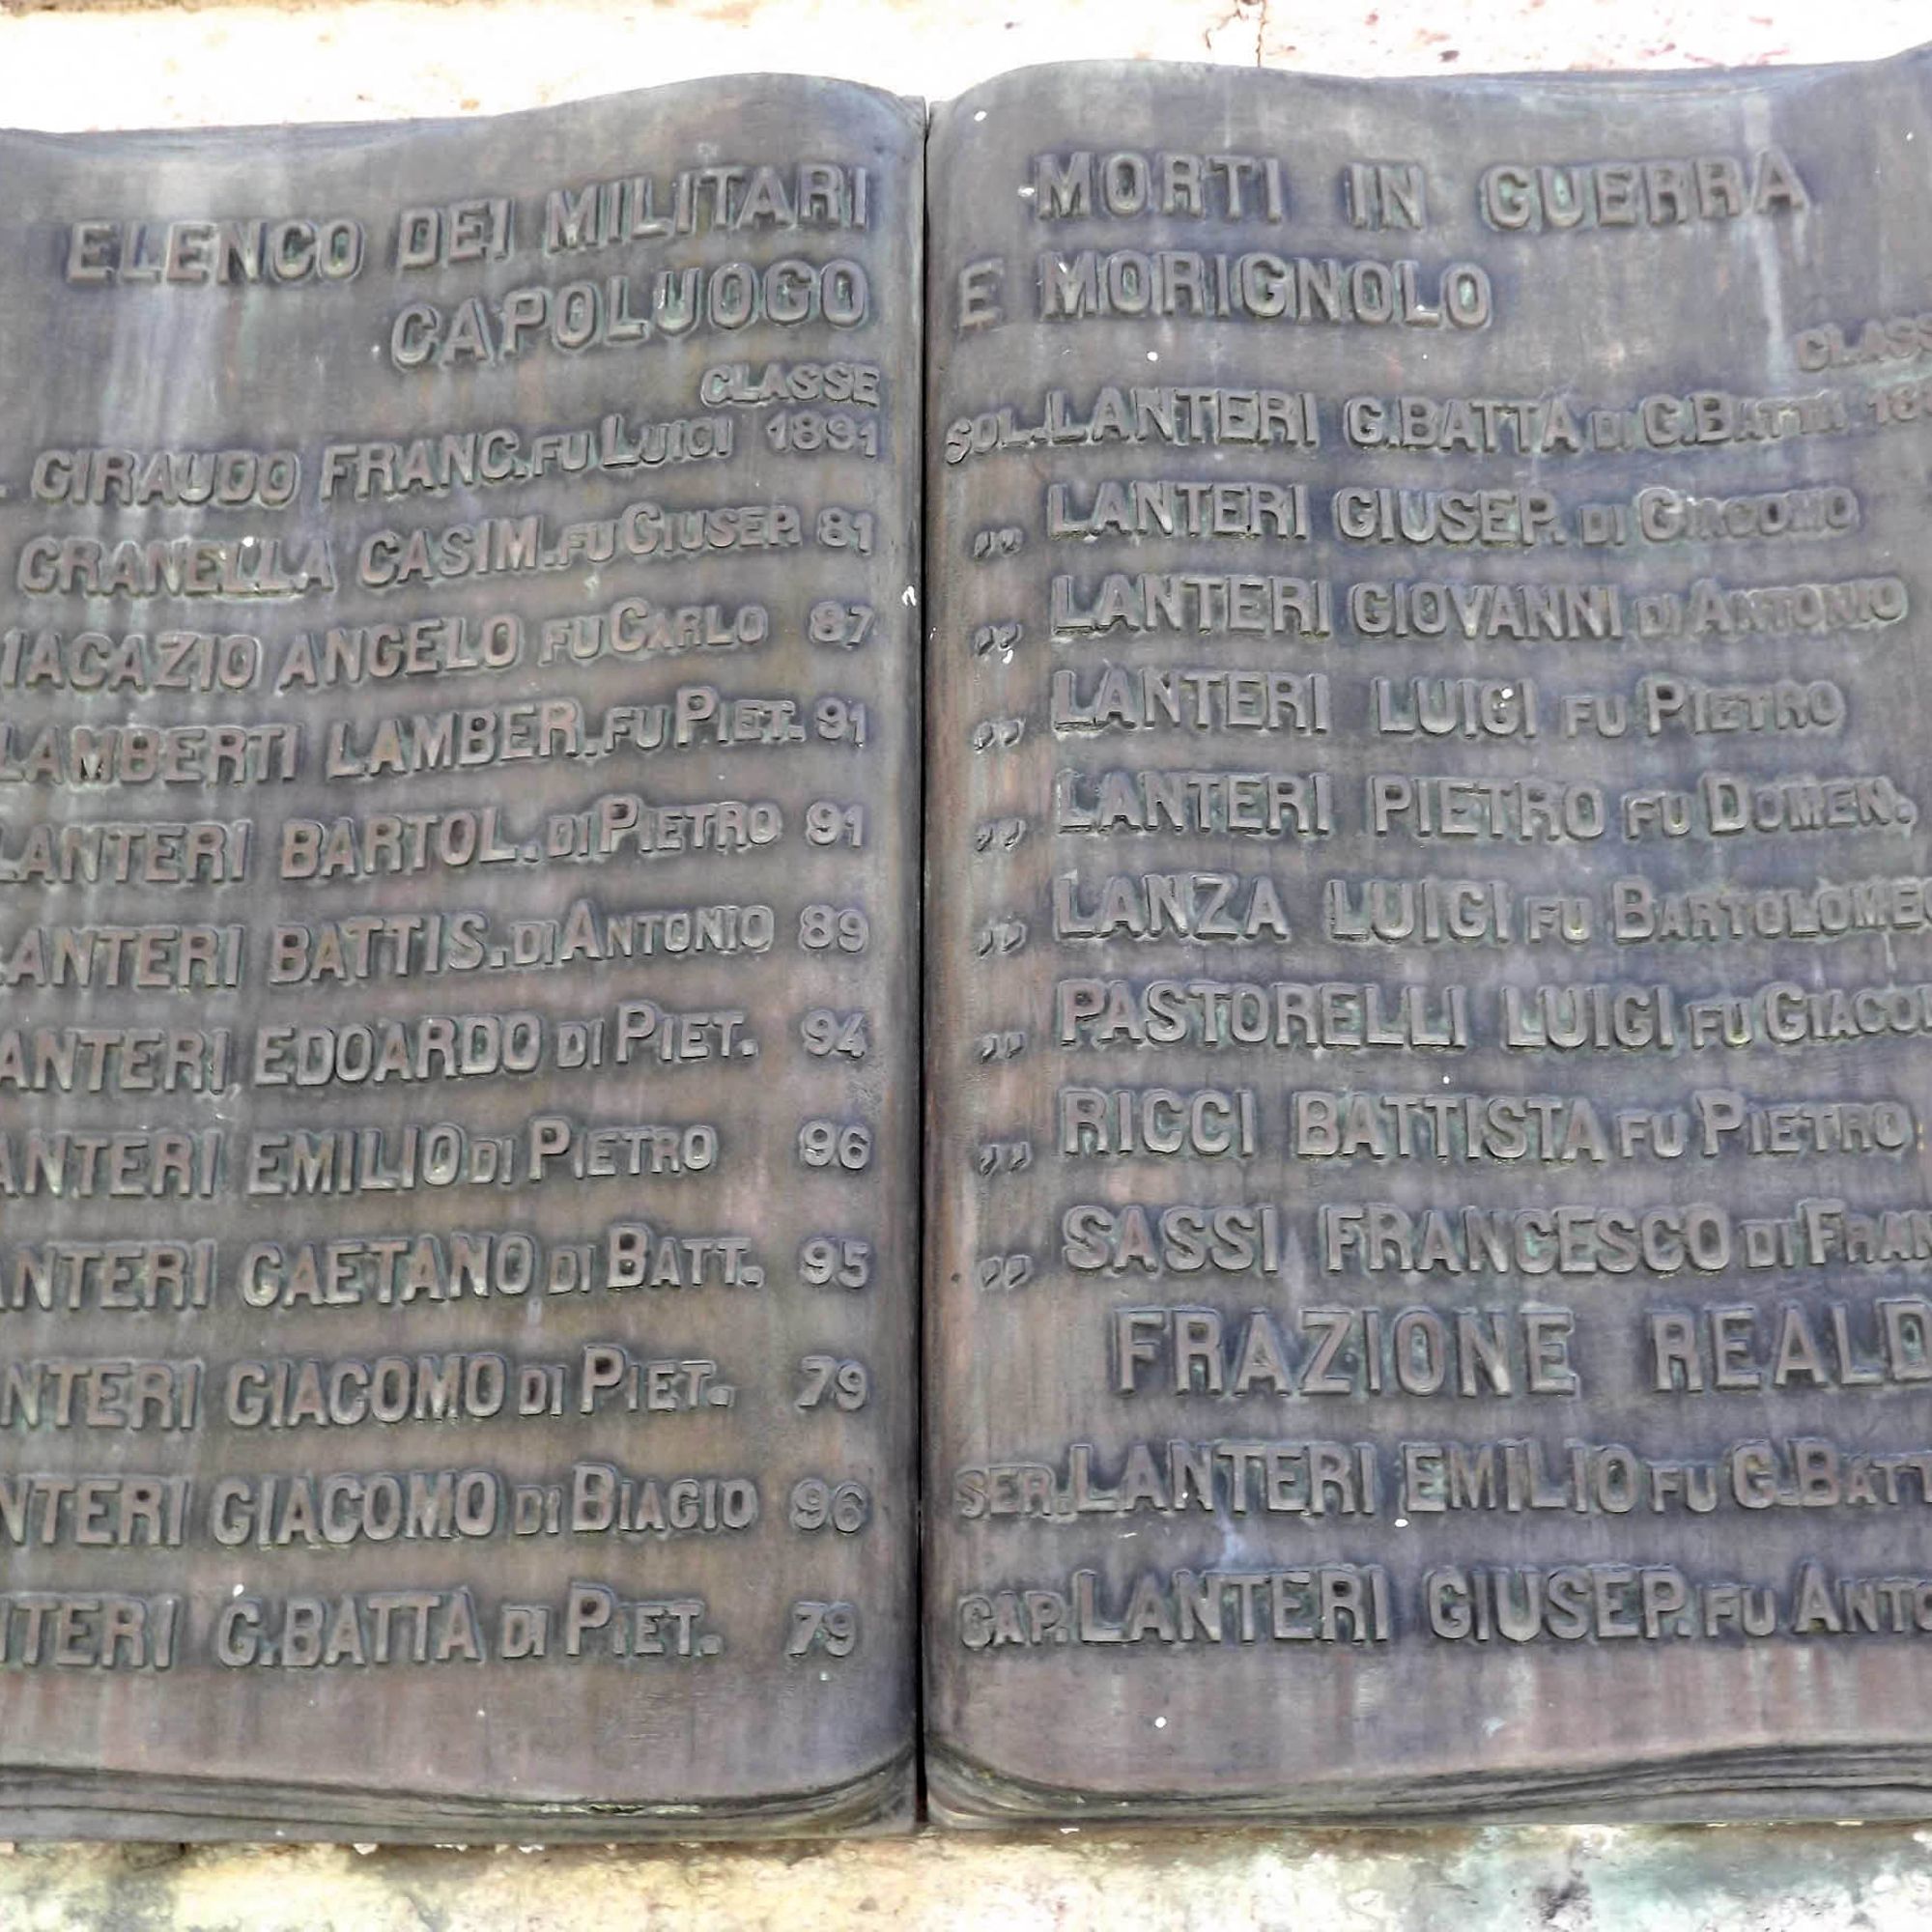 ELENCO DEI MILITARI
CAPOLUOGO
CLASSE
GIRAUDO FRANC. FU LUIGI 1891
GRANELLA CASIM. FU GIUSEP. 81
IACAZIO ANGELO FU CARLO 87
LAMBERTI LAMBER. FU PIET. 91
LANTERI BARTOL. DI PIETRO 91
LANTERI BATTIS. DI ANTONIO 89
ANTERI EDOARDO DI PIET. 94
ANTERI EMILIO DI PIETRO 96
NTERI GAETANO DI BATT. 95
NTERI GIACOMO DI PIET. 79
NTERI GIACOMO DI BIAGIO 96
TERI G.BATTA DI PIET. 79
MORTI IN GUERRA
E MORIGNOLO
CLASS
SOL. LANTERI G.BATTA DI G.BATTA 18
„ LANTERI GIUSEP. DI GIACOMO
„ LANTERI GIOVANNI DI ANTONIO
„ LANTERI LUIGI FU PIETRO
„ LANTERI PIETRO FU DOMEN.
„ LANZA LUIGI FU BARTOLOME
„ PASTORELLI LUIGI FU GIACO
„ RICCI BATTISTA FU PIETRO
„ SASSI FRANCESCO DI FRAN
FRAZIONE REALD
SER. LANTERI EMILIO FU G.BATT
CAP. LANTERI GIUSEP. FU ANTO